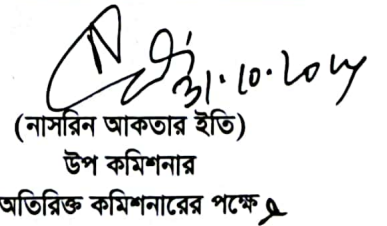 31.10.2024
(নাসরিন আকতার ইতি)
উপ কমিশনার
অতিরিক্ত কমিশনারের পক্ষে